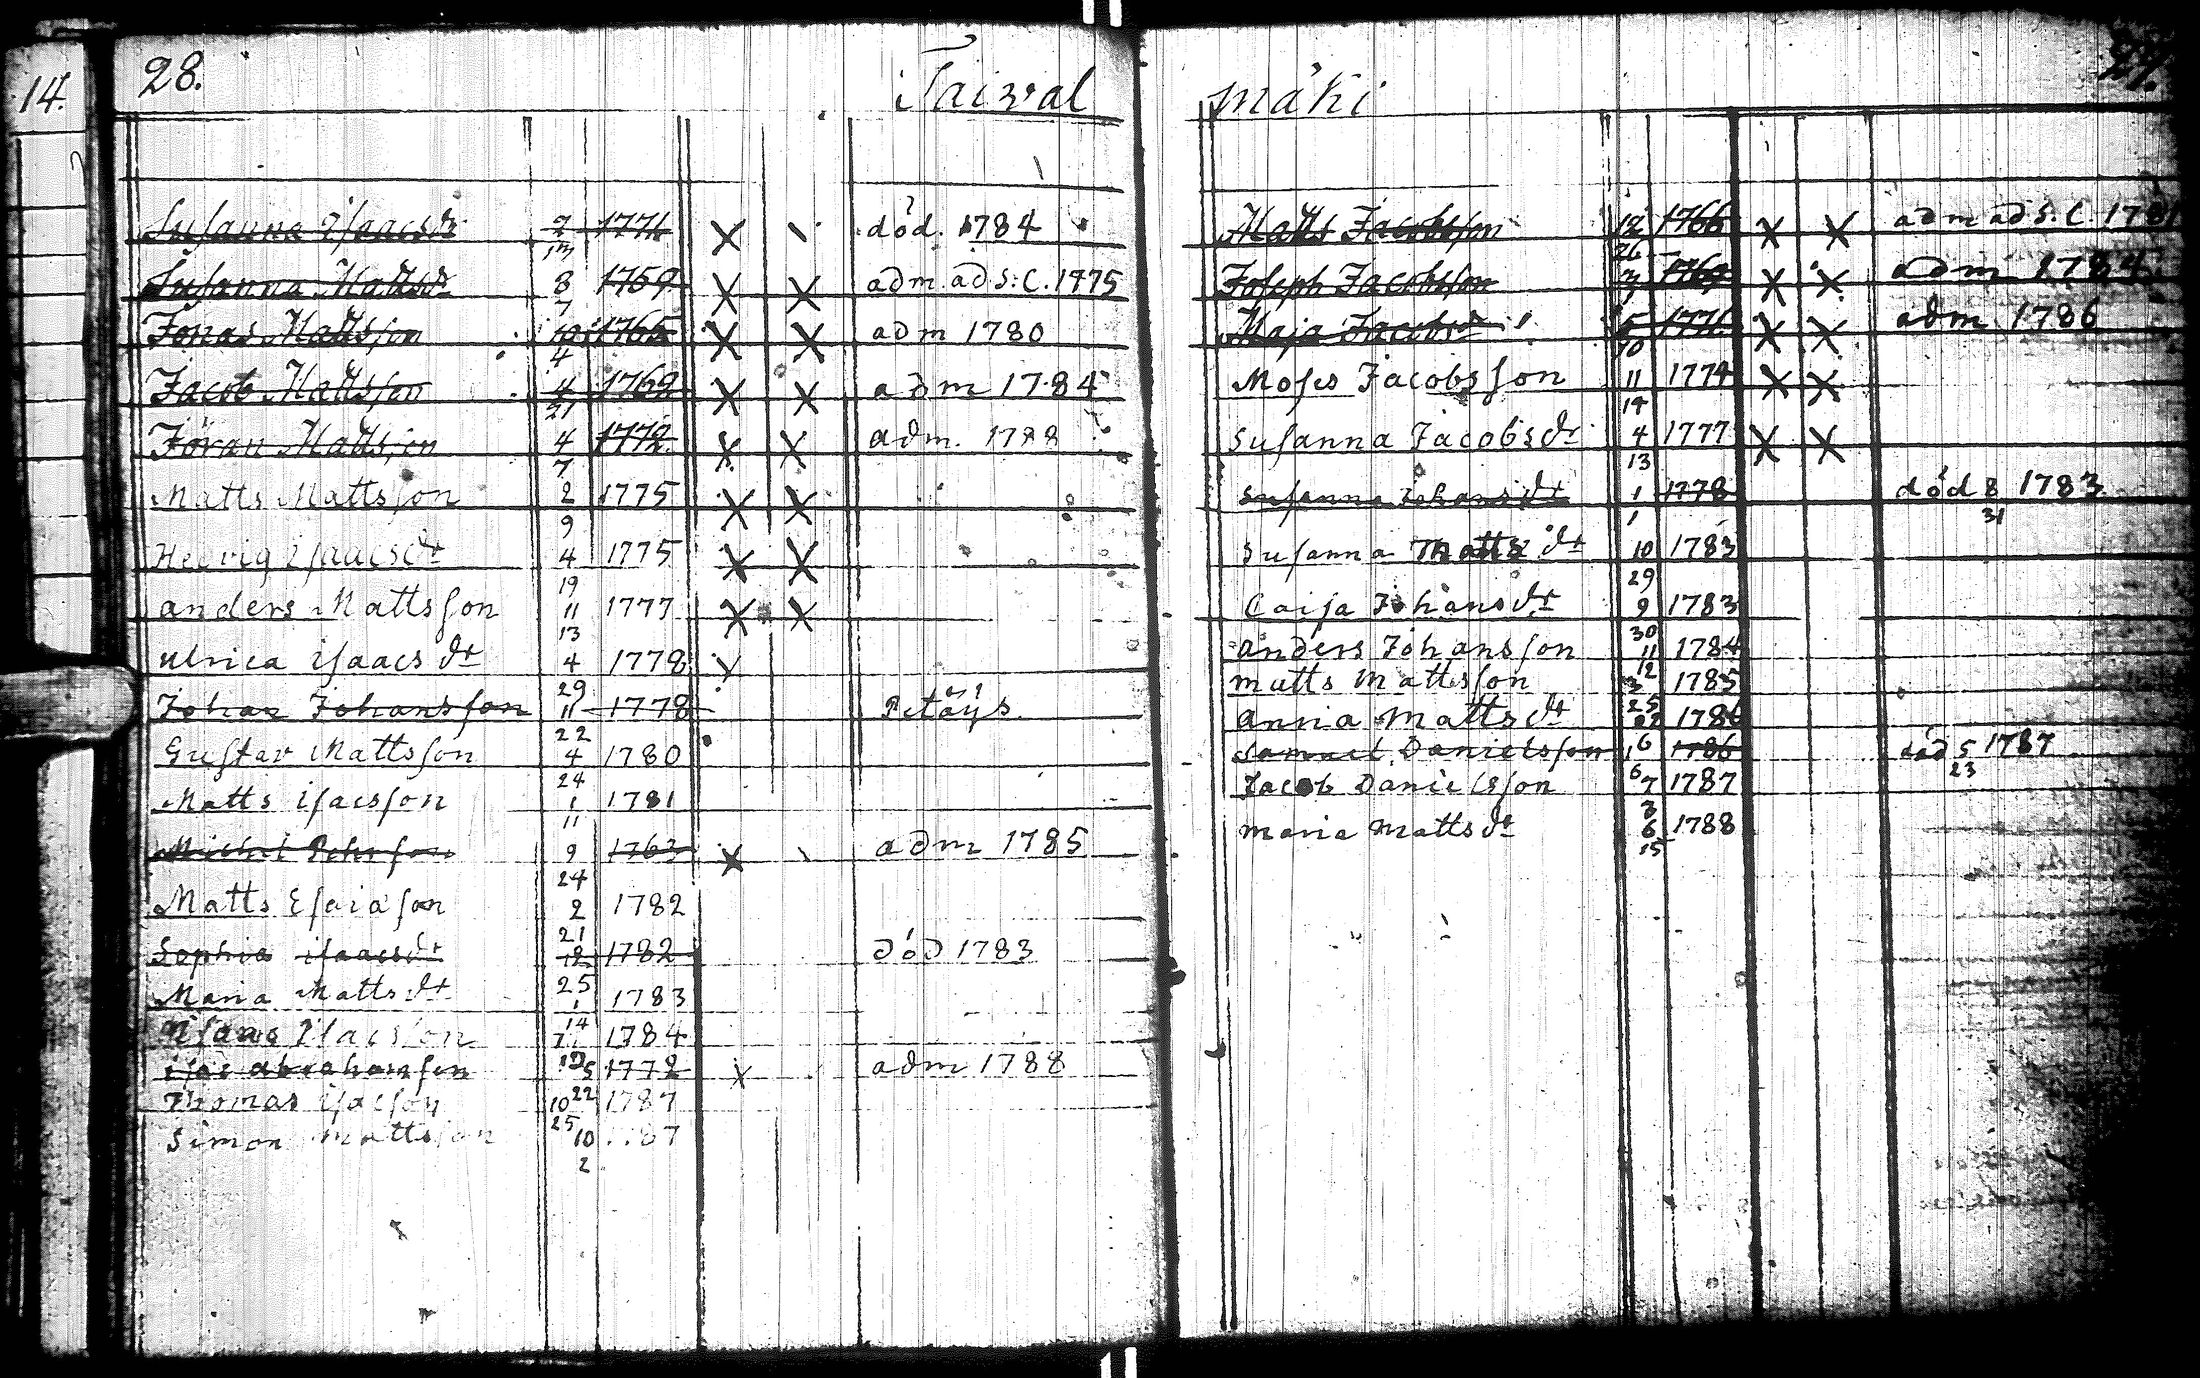 14.
28.
Taival
Susanna Isaacsdr 2 1771 död. 1784
13
Susanna Mattsdr 8 1769 adm. ad S:C. 1775
7
Jonas Mattsson 10 1765 adm 1780
4
Jacob Mattsson 4 1769 adm 1784
21
Jöran Mattsson 4 1772 adm. 1788
7
Matts Mattsson 2 1775
9
Hedvig Isaacsdr 4 1775
19
anders Mattsson 11 1777
13
ulrica isaacs dr 4 1778
29
Johan Johansson 11 1778 Petäys
22
Gustav Mattsson 4 1780
24
Matts isacsson 1 1781
11
Michel Pehrsson 9 1763 adm 1785
24
Matts Esaiason 2 1782
21
Sophia isaacsdr 12 1782 död 1783
25
Maria Matts dr 1 1783
14
Isacsson 7 1784
12
isac abrahamsson 5 1772 adm 1788
22
Thomas isacson 10 1787
25
Simon mattsson 10 1787
2
mäki
27.
Matts Jacobsson 12 1766 adm ad S:C. 1781
26
Joseph Jacobsson 7 1769 adm 1784
7
Maja Jacobsdr 5 1771 adm 1786
10
Moses Jacobsson 11 1774
14
Susanna Jacobsdr 4 1777
13
Susanna Johansdr 1 1778 död 8 1783
1 31
Susanna Matts dr 10 1783
29
Caisa Johansdr 9 1783
30
anders Johansson 11 1784
12
matts Mattsson 3 1785
25
anna Mattsdr 22 1786
6
Samuel Danielsson 1 1786 död 5 1787
6 23
Jacob Danielsson 7 1787
3
maria mattsdr 6 1788
15